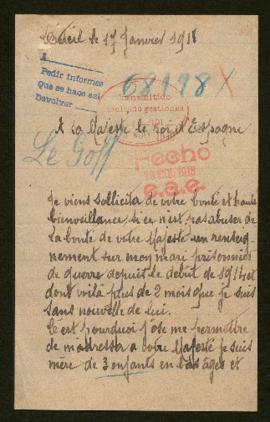 le 17 Janvier 1918
Pedir Informes
Que se haga así
Devolver
68198 X
A Sa Majesté le Roi d'Espagne
Le Goff
Fecho
1918
Je viens sollicita de votre bonté et haute
bienveillance si ce n'est pas abuser de
la bonté de votre Majesté un renseig-
nement sur mon mari prisonnier
de guerre depuis le début de 1914 et
dont voilà plus de 2 mois que je suis
sans nouvelle de lui.
C'est pourquoi j'ose me permettre
de m'adresser a votre Majesté je suis
mère de 3 enfants en bas âges et